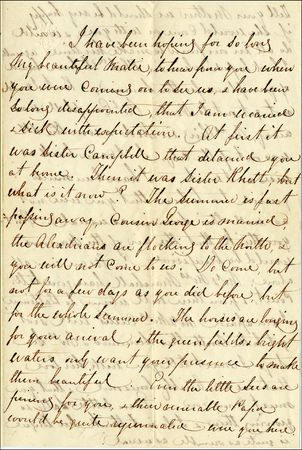 I have been hoping for so long
My beautiful Matie, to hear from you when
you were coming on to see us, & have been
so long disappointed, that I am wearied
& sick with expectation. At first it
was Sister Campbell that detained you
at home. Then it was Sister Rhett, but
what is it now? The Summer is fast
passing away, Cousin George is married,
the are flocking to the North, &
you will not come to us. Do come, but
not for a few days as you did before, but
for the whole Summer. The horses are longing
for your arrival, & the green fields & bright
waters only want your presence to make
them beautiful. Even the little are
pining for you, & the venerable Papa
would be quite rejuvenated were you here